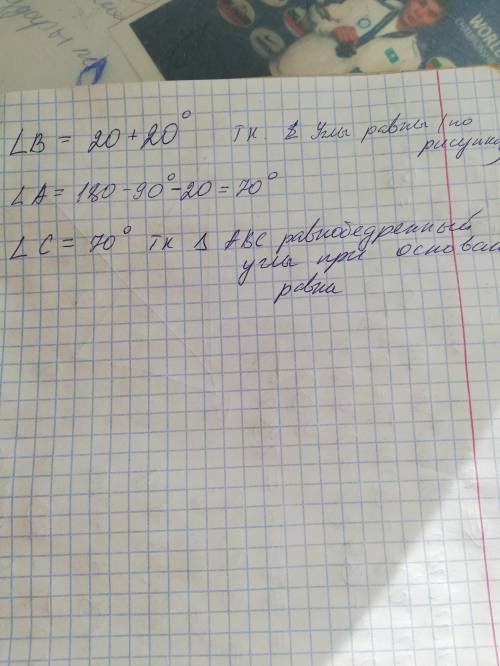 ∠B = 20 + 20° тк ∠ углы равны (по
рисунку)
∠A = 180 - 90° - 20 = 70°
∠C = 70° тк Δ ABC равнобедренный
углы при основан
равны
WOR